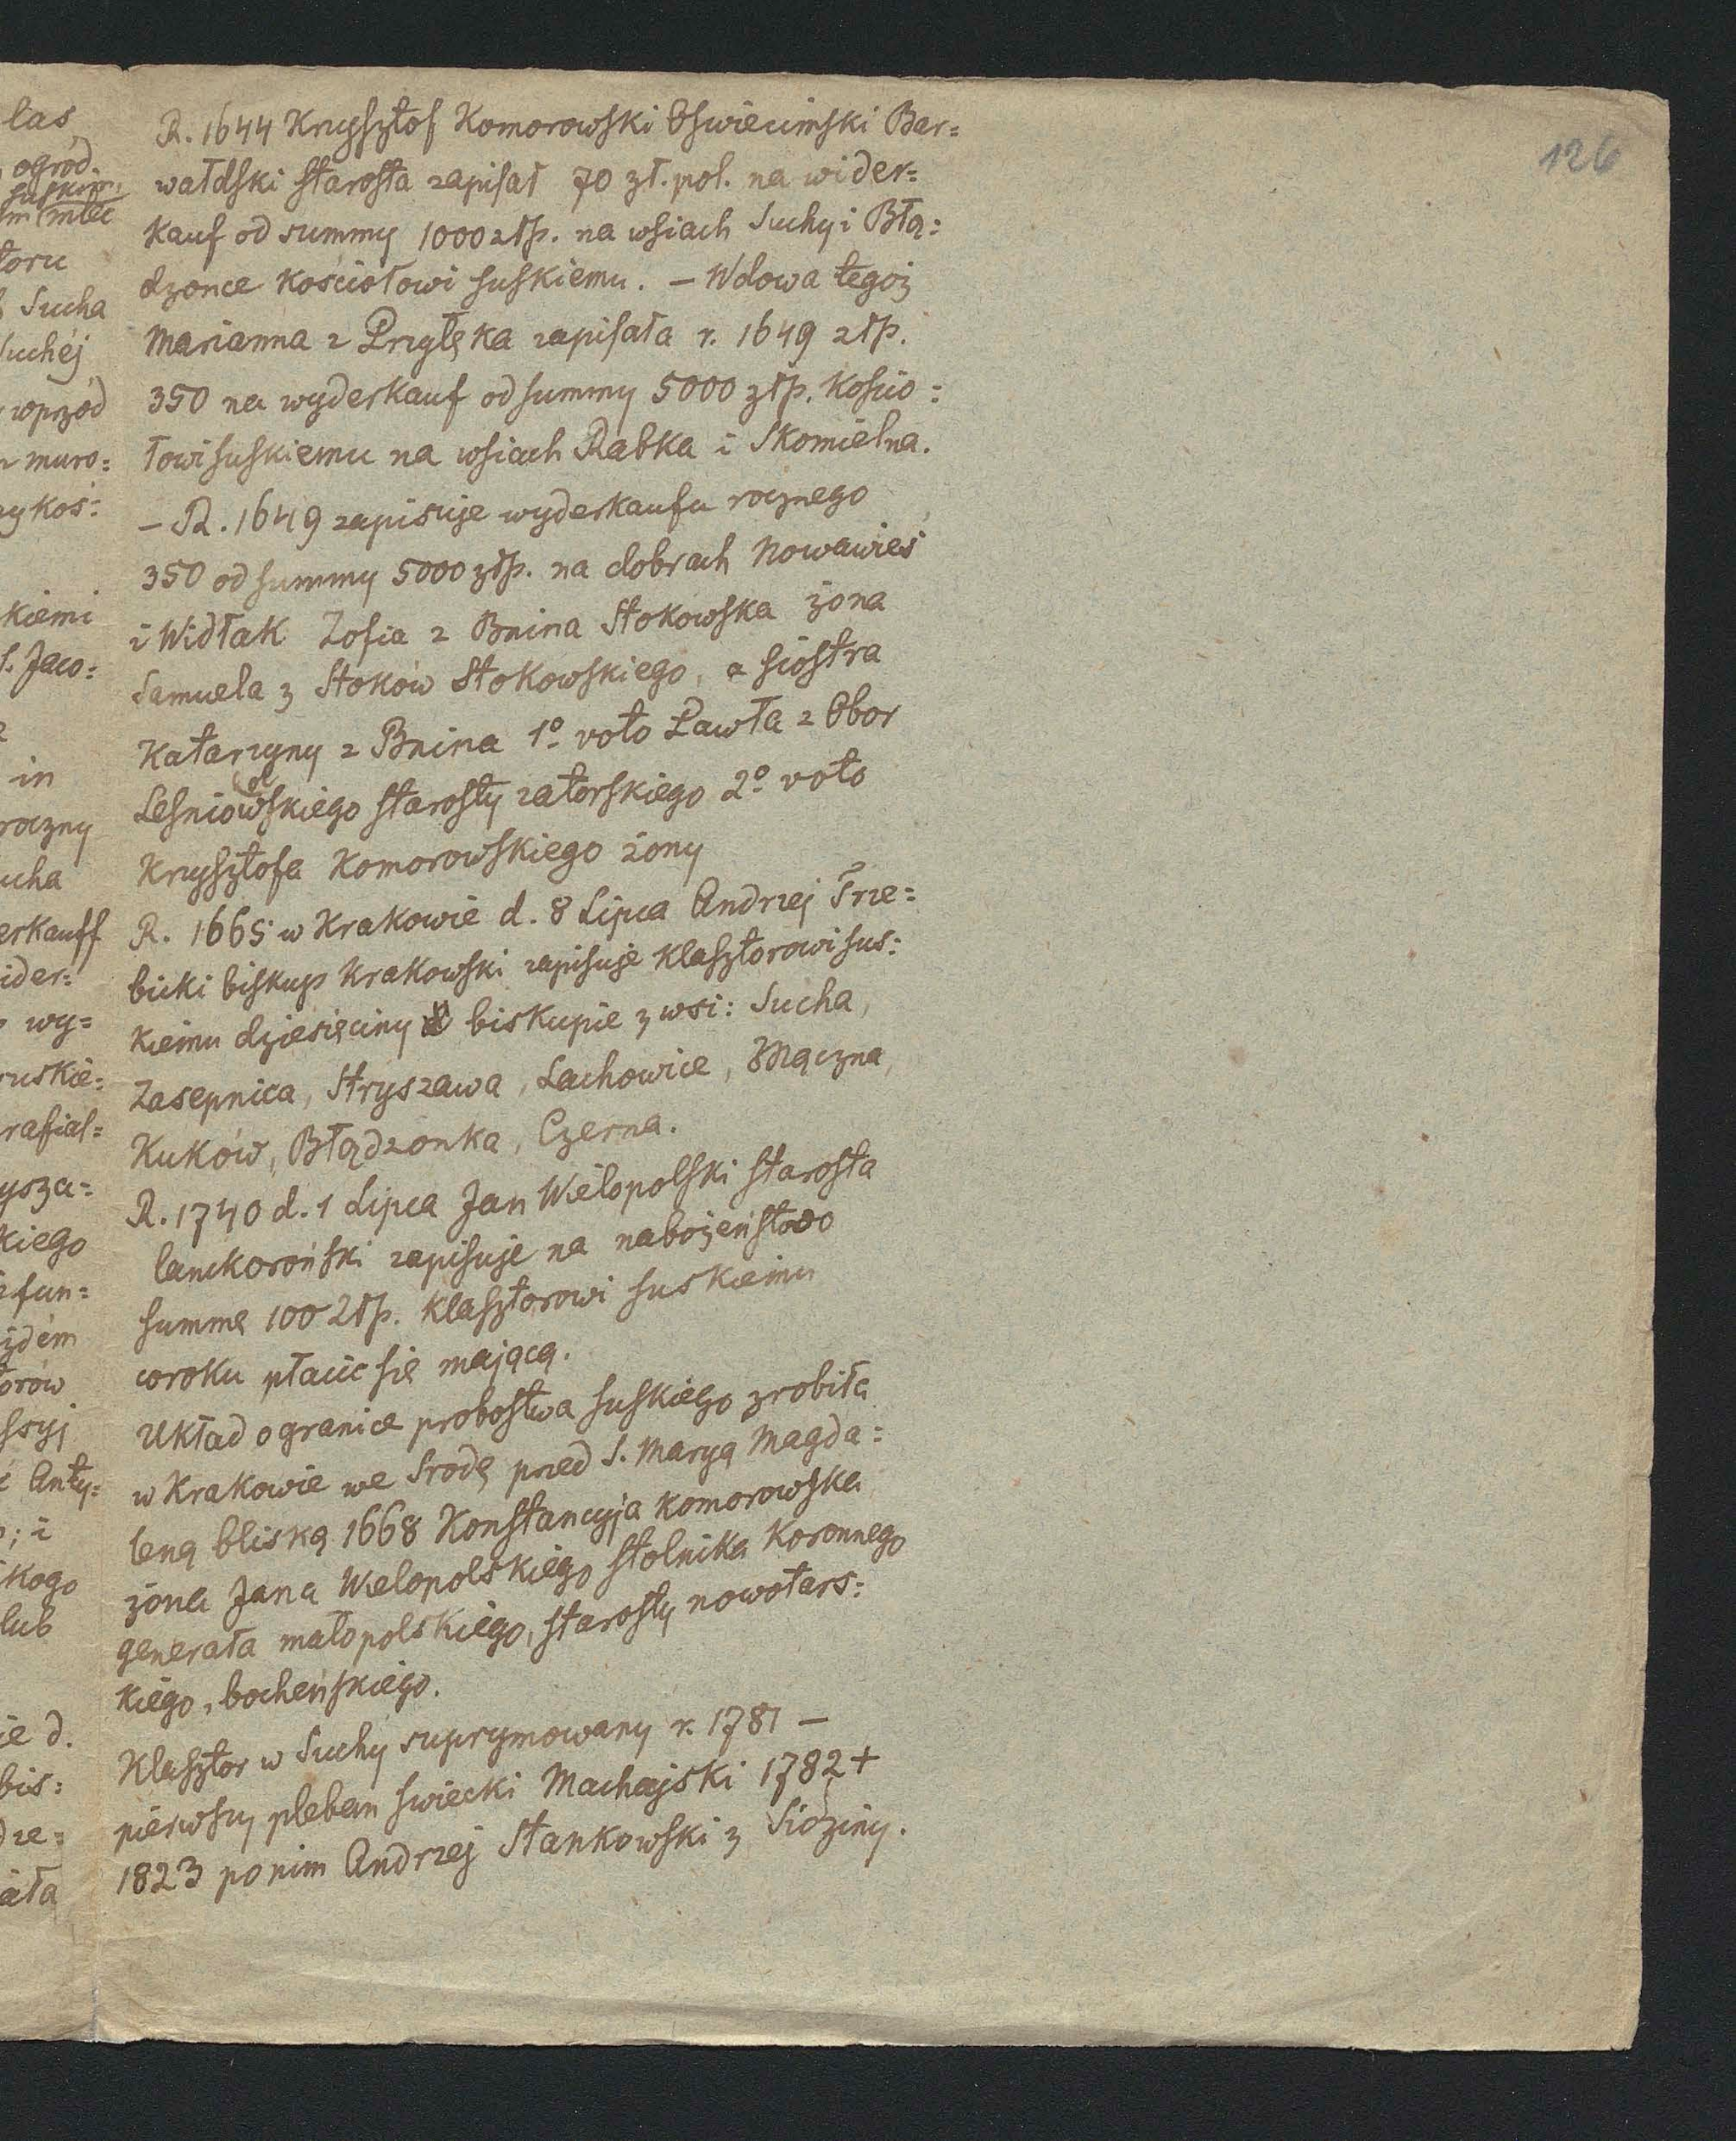 126
las
ogród.
suskim
mlec
toru
Sucha
Suchéj
wprzód
muro=
kos:
kiemi
S. Jaco=
in
roczny
ucha
erkauff
ider=
wy=
ruskie=
rafial=
ysza=
kiego
fun=
żdém
orów
ssyj
Anty=
; i
kogo
lub
ie d.
bis:
dze=
ała
R. 1644 Krzysztof Komorowski Oswiecimski Bar=
wałdski starosta zapisał 70 zł. pol. na wider=
kauf od summy 1000 złp. na wsiach Suchy i Błą=
dzonce kościołowi suskiemu. – Wdowa tegoż
Marianna z Przyłęka zapisała r. 1649 złp.
350 na wyderkauf od summy 5000 złp. kościo=
łowi suskiemu na wsiach Rabka i Skomielna.
– R. 1649 zapisuje wyderkaufu rocznego
350 od summy 5000 złp. na dobrach Nowawieś
i Widłak Zofia z Bnina Stokowska żona
Samuela z Stoków Stokowskiego, a siostra
Katarzyny z Bnina 1º voto Pawła z Obor
Leśniowolskiego starosty zatorskiego 2º voto
Krzysztofa Komorowskiego żony
R. 1665 w Krakowie d. 8 Lipca Andrzej Trze=
bicki biskup Krakowski zapisuje klasztorowi sus=
kiemu dziesięciny biskupie z wsi: Sucha,
Zasepnica, Stryszawa, Lachowice, Mączna,
Kuków, Błądzonka, Czerna.
R. 1740 d. 1 Lipca Jan Wielopolski starosta
lanckoroński zapisuje na nabożeństwo
summę 100 złp. klasztorowi suskiemu
coroku płacić się mającą.
Układ o granice probostwa suskiego zrobiła
w Krakowie we Srodę przed S. Maryą Magda=
leną bliską 1668 Konstancyja Komorowska
żona Jana Wielopolskiego stolnika Koronnego
generała małopolskiego, starosty nowotars=
kiego, bocheńskiego.
Klasztor w Suchy suprymowany r. 1781 –
pierwszy pleban swiecki Machajski 1782 +
1823 po nim Andrzej Stankowski z Sidziny.